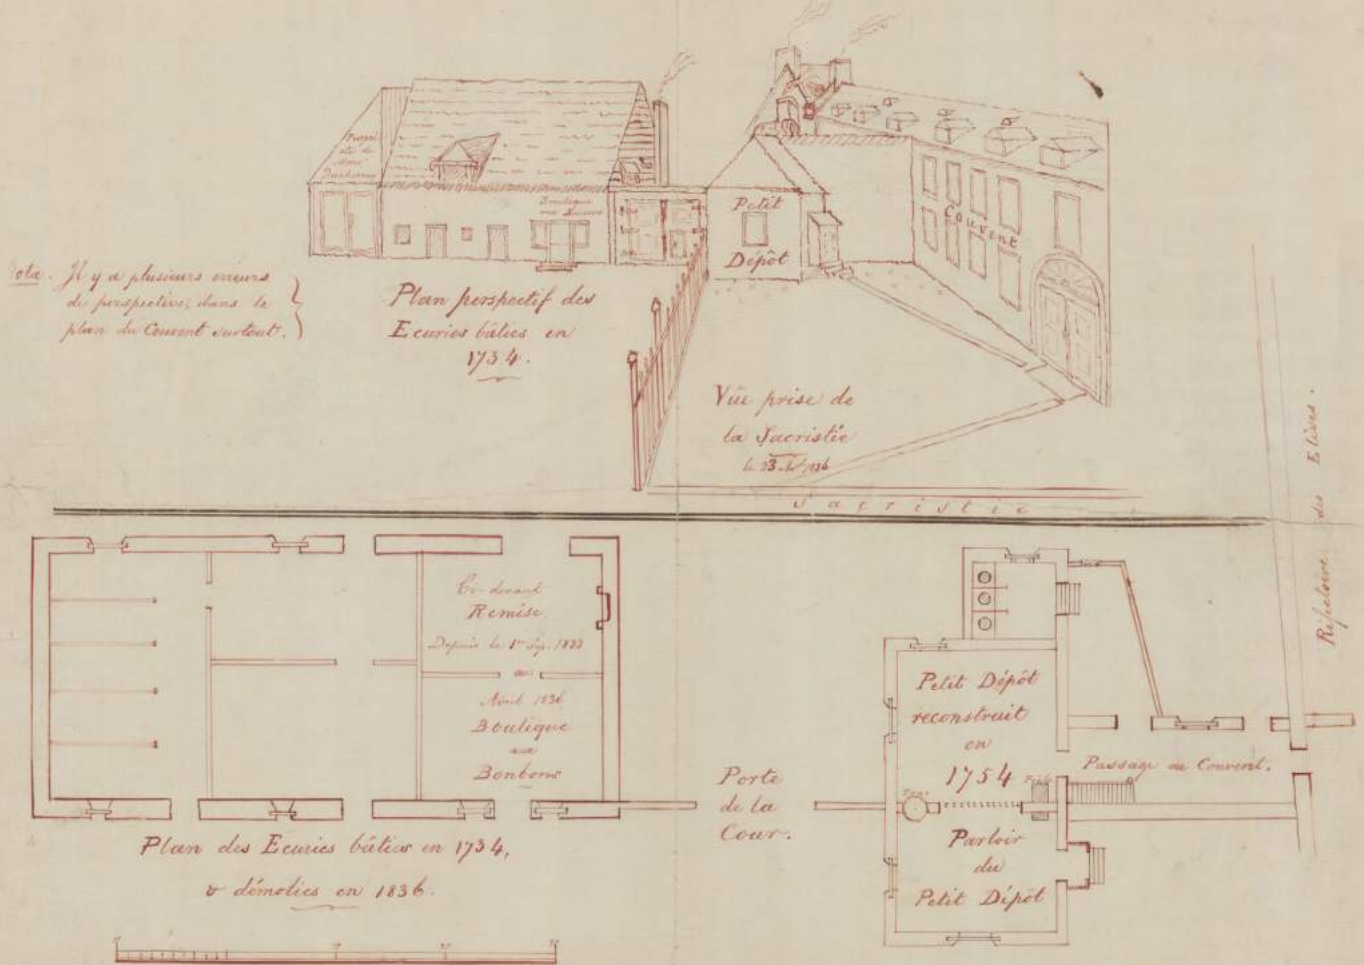 Petit
Dépôt
Couvent
Boutique
Nota. Il y a plusieurs erreurs
de perspective, dans le
plan du Couvent surtout.
Plan perspectif des
Ecuries bâties en
1734.
Vüe prise de
la Sacristie
le 23
Sacristie
Réfectoire des Elèves.
Ci-devant
Remise.
Depuis le 1er 1833
au
Avril 1836
Boutique
aux
Bonbons
Plan des Ecuries bâties en 1734,
& démolies en 1836.
Porte
de la
Cour.
Petit Dépôt
reconstruit
en
1754
Passage au Couvent.
Tour
Parloir
du
Petit Dépôt